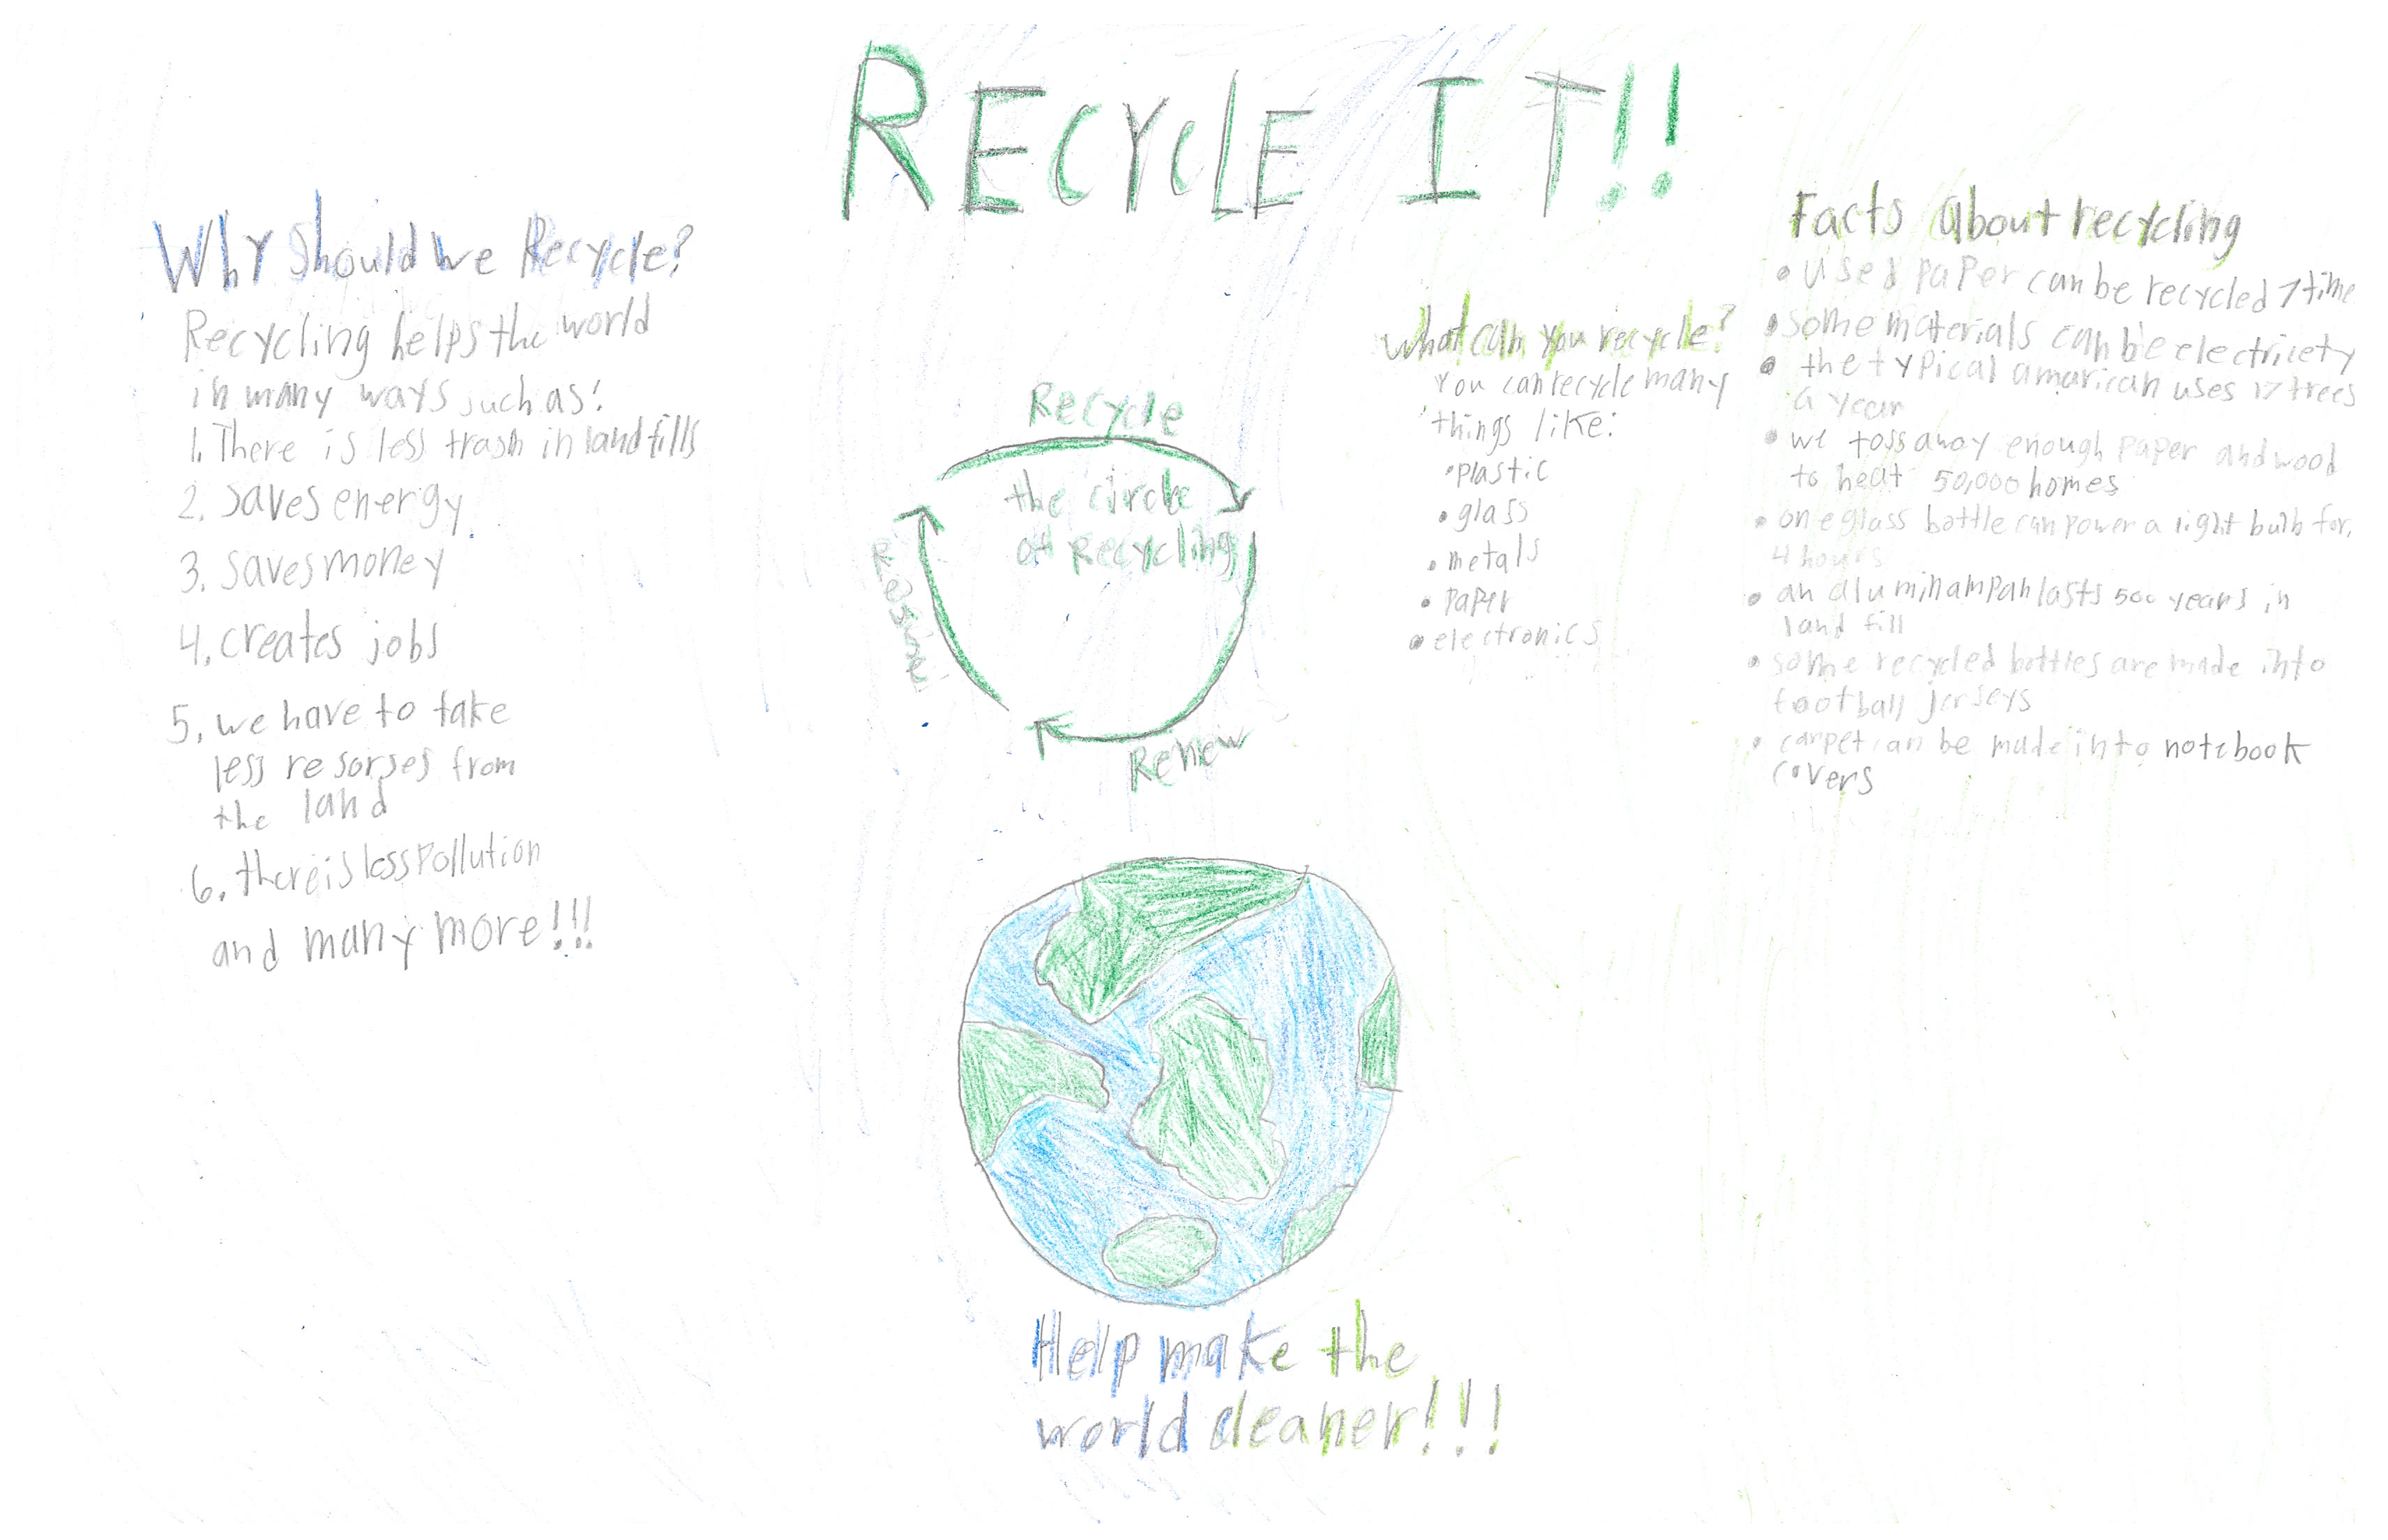 RECYCLE IT!!
Why Should we Recycle?
Recycling helps the world
in many ways such as:
1. There is less trash in landfills
2. Saves energy
3. Saves money
4. creates jobs
5. we have to take
less resorses from
the land
6. there is less Pollution
and many more!!!
Recycle
the circle
of Recycling
Renew
What can you recycle?
You can recycle many
things like:
• plastic
• glass
• metals
• paper
• electronics
Facts about recycling
• Used paper can be recycled 7 time
• some materials can be electriciety
• the typical amarican uses 17 trees
a year
• we toss away enough paper and wood
to heat 50,000 homes
• one glass bottle can power a light bulb for,
4 hours
• an aluminam pan lasts 500 years in
land fill
• some recycled bottles are made into
football jerseys
• carpet can be made into notebook
covers
Help make the
world cleaner!!!